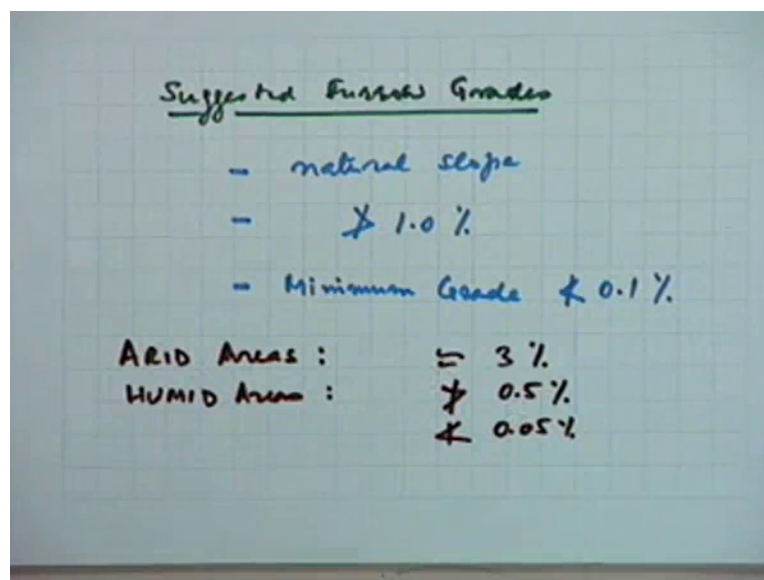 Suggested Furrow Grades
- natural slope
- ≯ 1.0 %
- Minimum Grade ≮ 0.1 %
ARID Areas : ≃ 3 %
HUMID Areas : ≯ 0.5 %
≮ 0.05 %